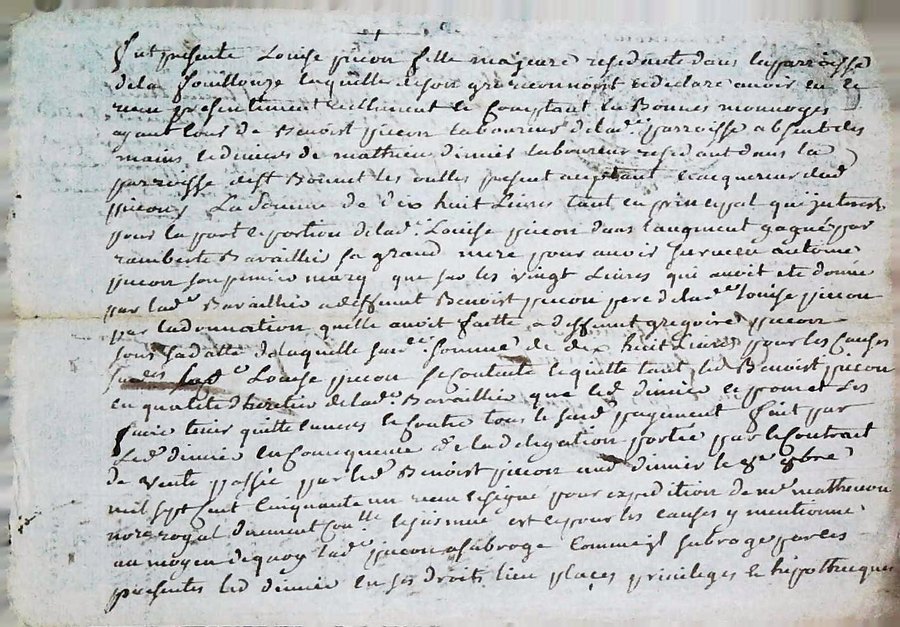 fut presente Louise picon fille majeure residente dans la parroisse
de la fouillouze laquelle de son gre reconnoist et declare avoir eu et
receu presentement reellement et comptant en Bonnes monnoyes
ayant cours de Benoist picon laboureur de lad.e parroisse absent des
mains et deniers de mathieu dimier laboureur residant dans la
parroisse de st Bonnet les oulles present acceptant et acquereur dud
picon La somme de dix huit Livres tant en principal qu'interests
pour la part et portion de lad.e Louise picon dans l'augment gagné par
ramberte Bavaillie sa grand mere pour avoir survecu antoine
picon son premier mary que sur les vingt Livres qui avoit ete donné
par lad.e Bavaillie a deffunt Benoist picon pere de lad.e Louise picon
par la donnation qu'elle avoit faitte a deffunt gregoire picon
sous sa datte de laquelle susd.e somme de dix huit Livres pour les causes
susdes lad.e Louise picon se contente et quitte tant led Benoist picon
en qualite d'heritier de lad.e Bavaillie que led dimier et promet les
faire tenir quitte envers et contre tous le susd payement fait par
Led dimier en consequence de la delegation portée par le Contrait
de vente passé par led Benoist picon aud dimier le 8.e 8bre
mil sept cent cinquante un receu et signé pour expedition de m.e mathevon
not.re royal duement con.lle et es pour les causes y mentionné
au moyen de quoy lad.e picon a subrogé comme il subroge par ces
presentes led dimier en ses droits, lieu places privileges et hipothecques